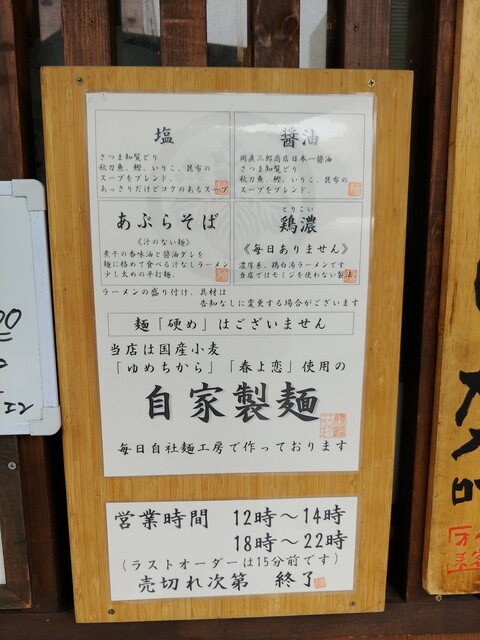 塩
さつま知覧どり
秋刀魚、鰹、いりこ、昆布の
スープをブレンド。
あっさりだけどコクのあるスープ
醤油
岡直三郎商店日本一醤油
さつま知覧どり
秋刀魚、鰹、いりこ、昆布の
スープをブレンド。
あぶらそば
《汁のない麺》
煮干の香味油と醤油ダレを
麺に絡めて食べる汁なしラーメン
少し太めの平打麺。
とりこい
鶏濃
《毎日ありません》
濃厚系、鶏白湯ラーメンです
当店ではモミジを使わない製法
ラーメンの盛り付け、具材は
告知なしに変更する場合がございます
麺「硬め」はございません
当店は国産小麦
「ゆめちから」「春よ恋」使用の
自家製麺
毎日自社麺工房で作っております
営業時間 12時～14時
18時～22時
(ラストオーダーは15分前です)
売切れ次第 終了